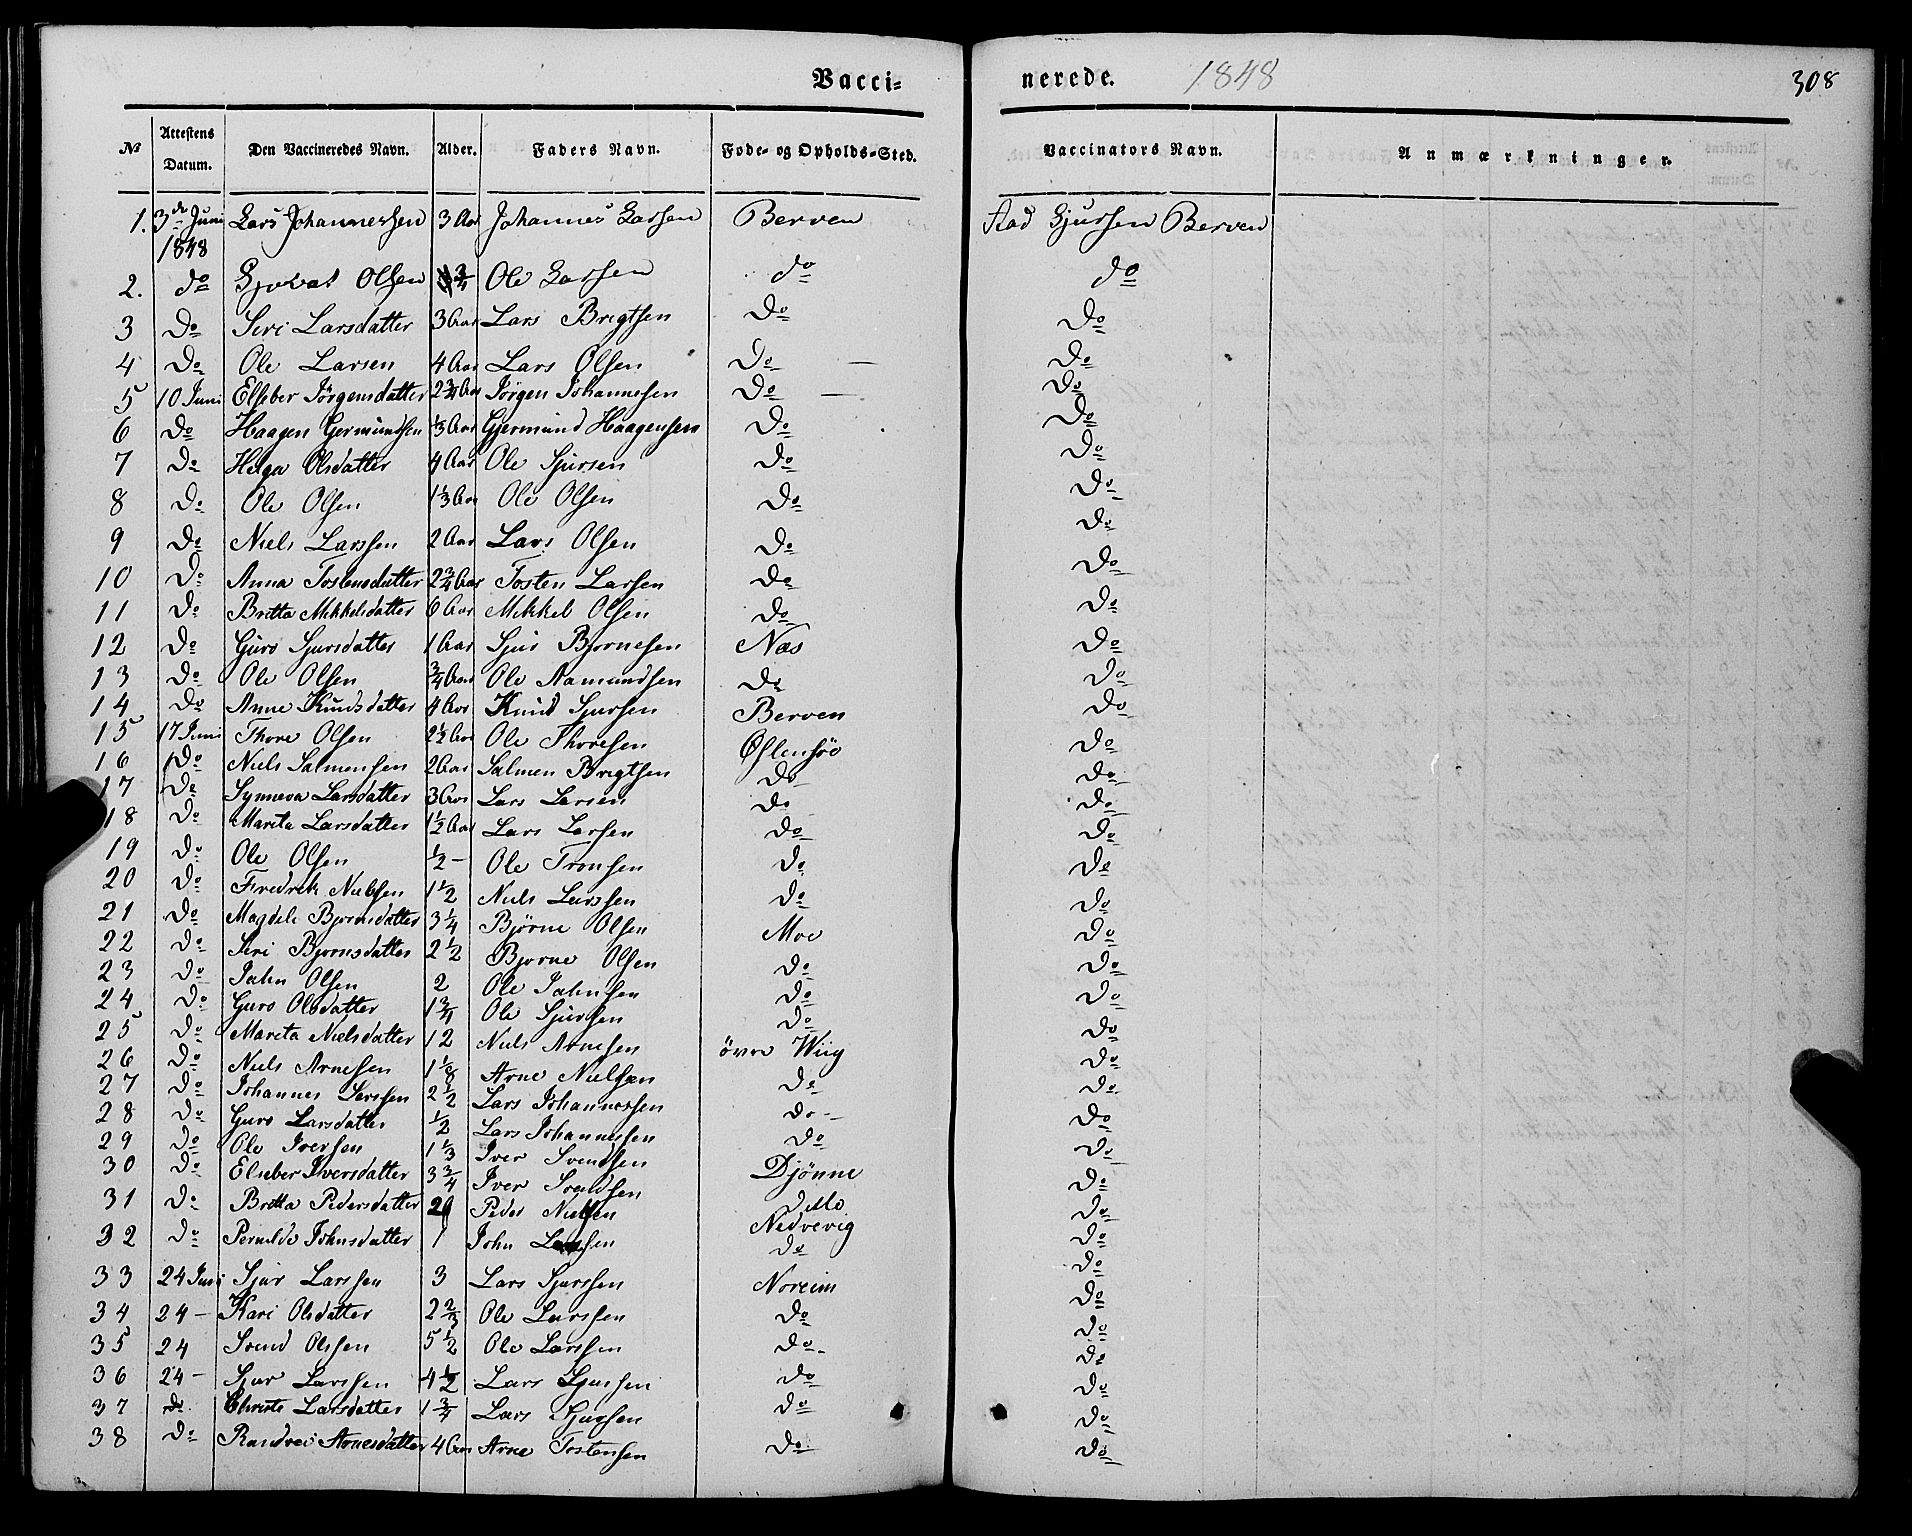 Vacci- nerede. 1848 308
№ Attestens Datum. Den Vaccineredes Navn. Alder. Faders Navn. Føde- og Opholds-Sted. Vaccinators Navn. Anmærkninger.
1. 3de Juni 1848 Lars Johannessen 3 Aar Johannes Larsen Berven Aad Sjursen Berven
2. do Olsen 3/4 Ole Larsen do do
3 Do Siri Larsdatter 3 Aar Lars Brigtsen Do Do
4 Do Ole Larsen 4 Aar Lars Olsen Do — Do
5 10 Juni Elseber Jörgensdatter 2 3/4 Aar Jörgen Johannesen Do — Do
6 Do Haagen Germundsen 1/3 Aar Gjermund Haagensen Do Do
7 Do Helga Olsdatter 4 Aar Ole Sjursen Do Do
8 Do Ole Olsen 1 1/3 Aar Ole Olsen Do Do
9 Do Niels Larssen 2 Aar Lars Olsen Do Do
10 Do Anna Tostensdatter 2 3/4 Aar Tosten Larsen Do Do
11 Do Britta Mikkelsdatter 6 Aar Mikkel Olsen Do Do
12 Do Guro Sjursdatter 1 Aar Sjur Bjornesen Næs Do
13 Do Ole Olsen 3/4 Aar Ole Aamundsen Do Do
14 Do Anne Knudsdatter 4 Aar Knud Sjursen Berven Do
15 17 Juni Thore Olsen 2 1/2 Aar Ole Thoresen Østensöe Do
16 Do Niels Salmensen 2 Aar Salmen Brigtsen Do Do
17 Do Synneva Larsdatter 3 Aar Lars Larsen Do Do
18 Do Marita Larsdatter 1 1/2 Aar Lars Larsen Do Do
19 Do Ole Olsen 1/2 — Ole Tronsen Do Do
20 Do Fredrik Nielsen 1 1/2 Niels Larssen Do Do
21 Do Magdeli Bjornsdatter 3 1/4 Bjørne Olsen Moe Do
22 Do Siri Bjornsdatter 2 1/2 Bjorne Olsen Do Do
23 Do Jahn Olsen 2 Ole Jahnsen Do Do
24 Do Guro Olsdatter 1 3/4 Ole Sjursen Do Do
25 Do Marita Nielsdatter 12 Niels Arnesen övre Wiig Do
26 Do Niels Arnessen 1 1/8 Arne Nielsen Do Do
27 Do Johannes Larssen 2 1/2 Lars Johannessen Do- Do
28 Do Guro Larsdatter 1/2 Lars Johannessen Do Do
29 Do Ole Iversen 1 1/3 Iver Svendsen Djönne Do
30 Do Elseber Iversdatter 3 3/4 Iver Svendsen Ditto Do
31 Do Britta Pedersdatter Peder Nielsen Nedrevig Do
32 Do Pernilde Johnsdatter 1 John Larssen Do Do
33 24 Juni Sjur Larssen 3 Lars Sjurssen Noreim Do
34 24 — Kari Olsdatter 2 2/3 Ole Larssen Do Do
35 24 Svend Olssen 5 1/2 Ole Larssen Do- Do
36 24 — Sjur Larssen 4 1/2 Lars Sjurssen Do Do
37 do Christi Larsdatter 1 3/4 Lars Sjursen Do Do
38 Do Randvei Arnesdatter 4 Aar Arne Tostensen Do Do